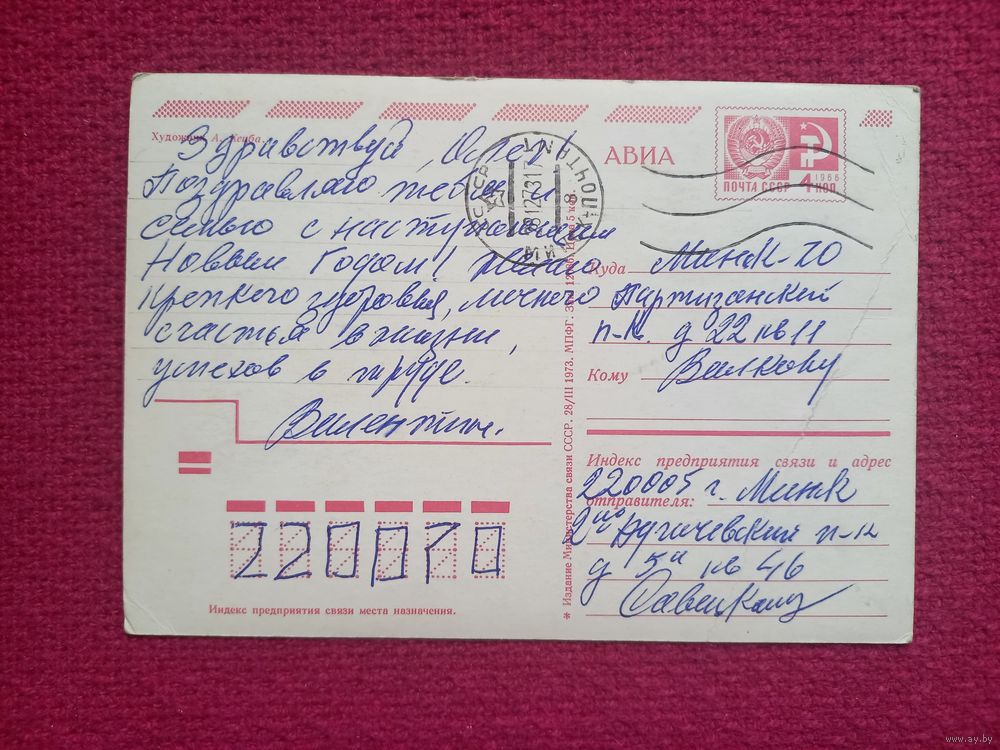 Художник А. Жебра.
Здравствуй, Олег!
Поздравляю тебя и
семью с наступающим
Новым Годом! Желаю
крепкого здоровья, личного
счастья в жизни,
успехов в труде.
Валентин.
Индекс предприятия связи места назначения.
220070
* Издание Министерства связи СССР. 28/III 1973. МПФГ. Зак. Цена 5 коп.
МИНСК ПОЧТАМТ
28127317
АВИА
ПОЧТА СССР
1966
4 КОП
Куда Минск-70
Партизанский
п-к. д 22 кв 11
Кому Валкову
Индекс предприятия связи и адрес
отправителя:
220005 г. Минск
д 5а кв 46
www.ay.by